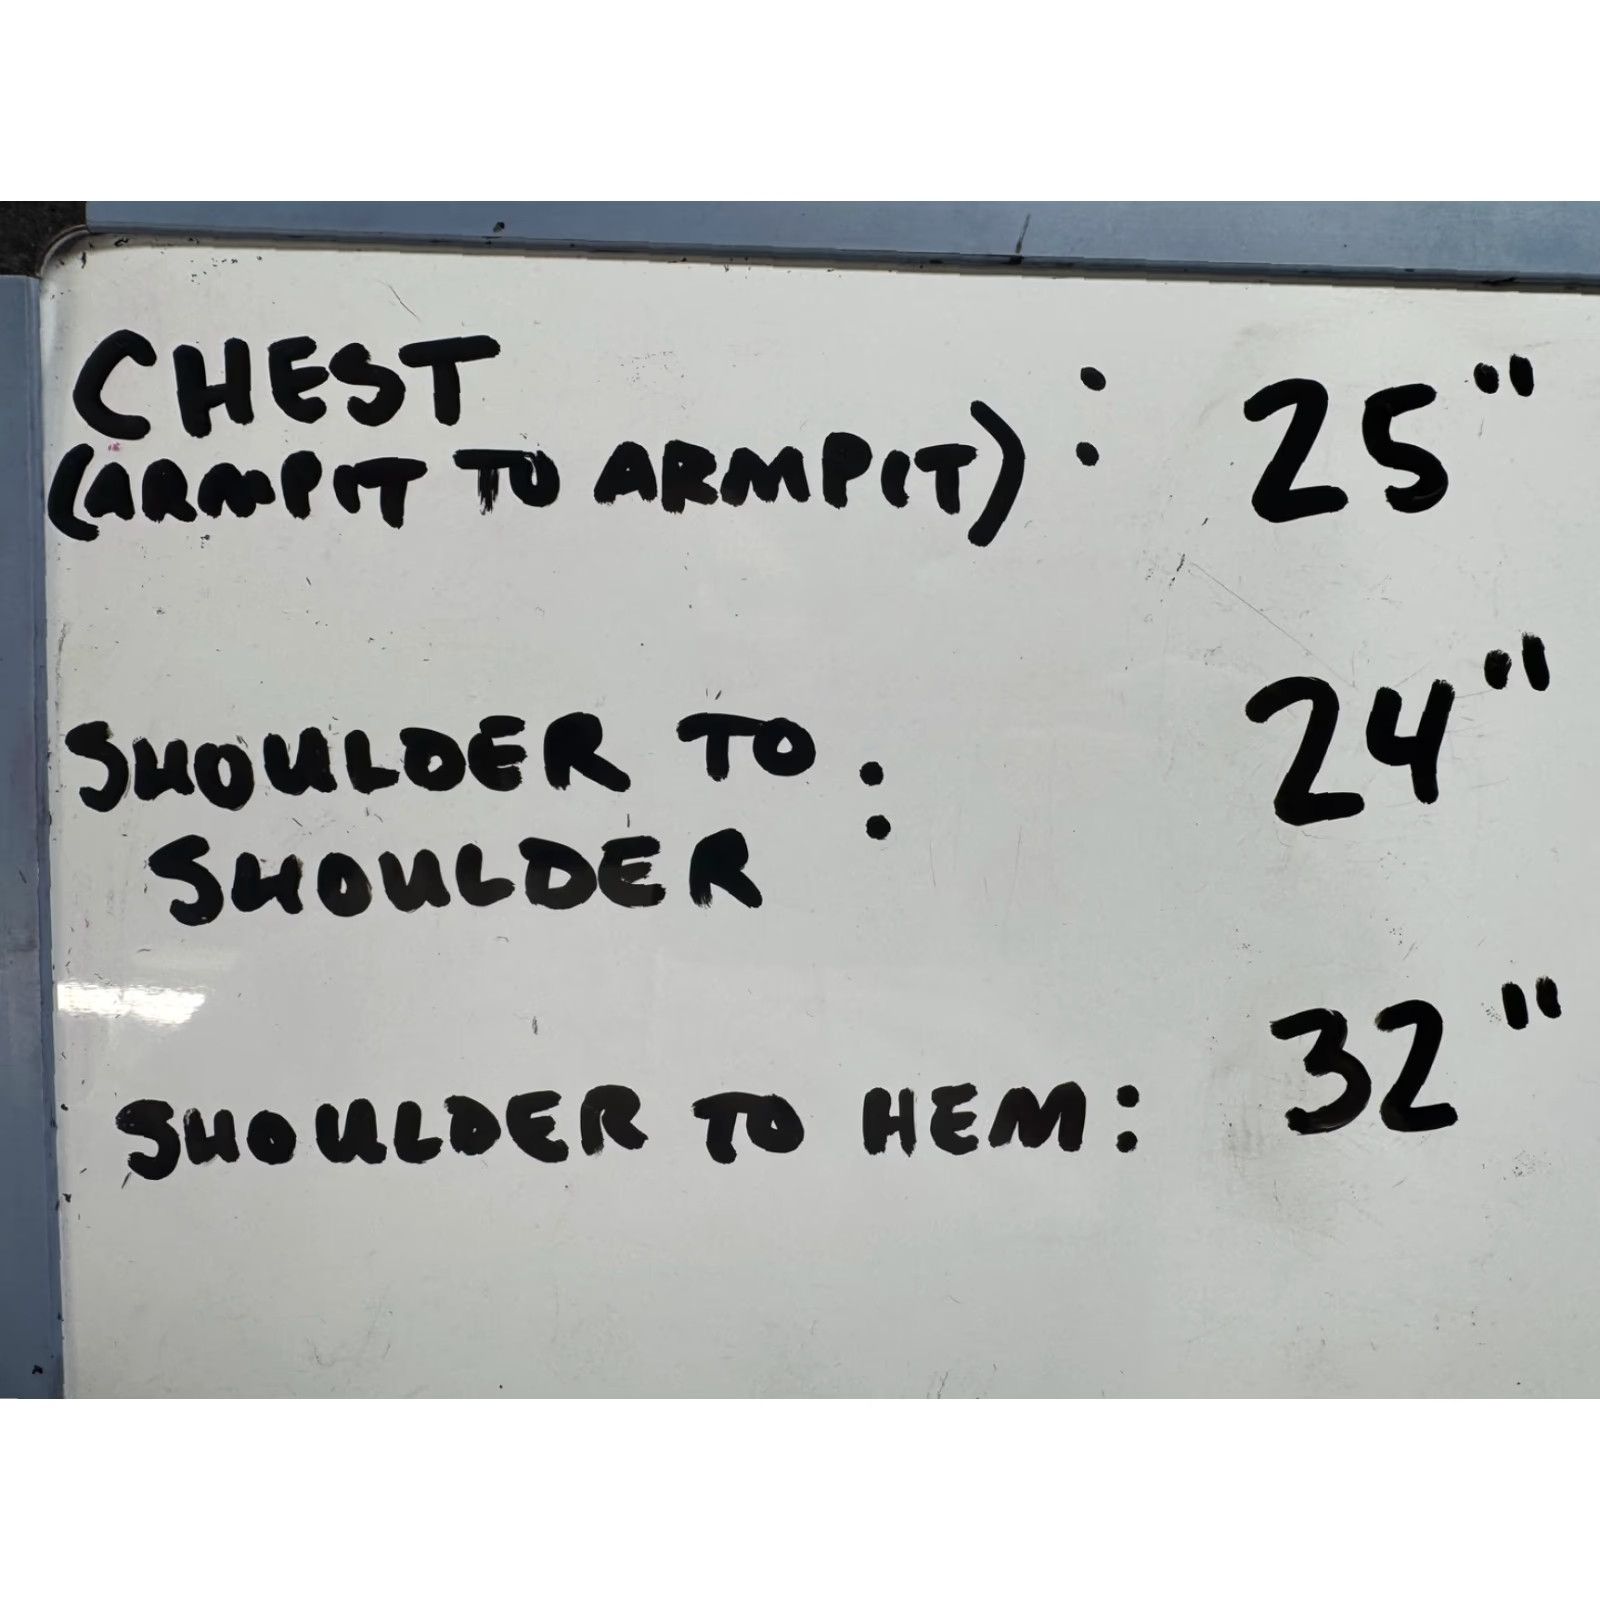 CHEST
(ARMPIT TO ARMPIT) : 25"
SHOULDER TO : 24"
SHOULDER
SHOULDER TO HEM: 32"